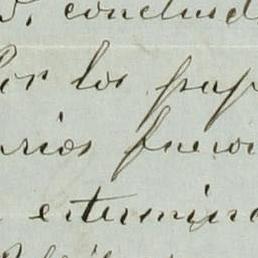 concluid
por los pap
arios fueron
extermina